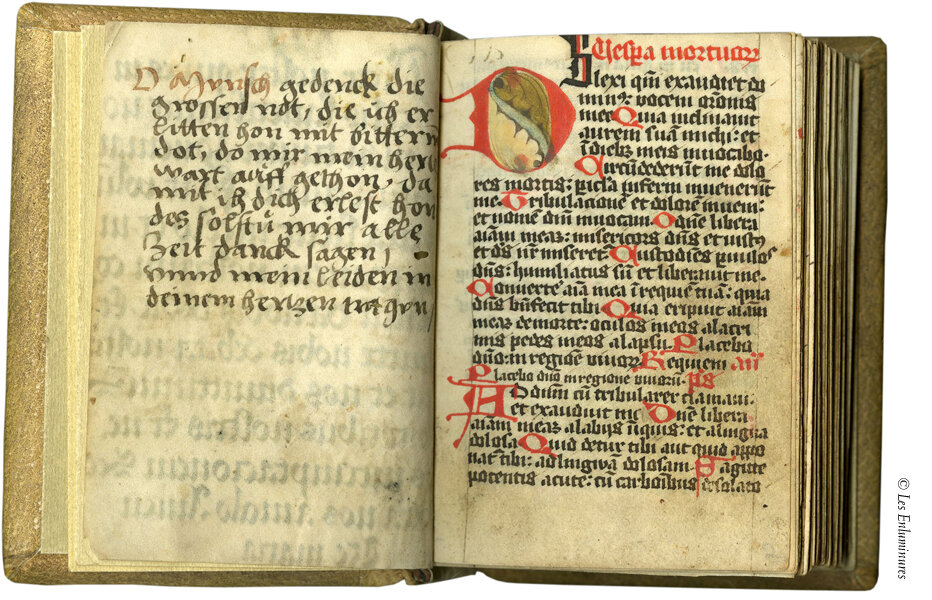 O Mensch gedenck die
grossen not, die ich er
litten hon mit bitterm
dot, do mir mein hertz
wart auff gethon, da
mit ich dich erlest hon
des solstu mir alle
Zeit danck sagen,
vnnd mein leiden in
deinem hertzen
Vespa mortuorꝝ
Dilexi qm̄ exaudiet do
minꝰ vocem oronis
mee Quia inclinauit
aurem suā michi: et
ī diebꝫ meis inuocabo.
Circūdederūt me dolo
res mortis: pīcla inferni inuenerūt
me Tribulacionē et dolorē inueni:
et nomē dn̄i inuocaui O dn̄e libera
aīam meaꝫ: misericors dn̄s et iustꝰ
et ds̄ nr̄ miseret Custodiēs puulos
dn̄s: humiliatus sū et liberauit me.
Conuerte aīa mea ī requiē tuā: quia
dn̄s bn̄fecit tibi Quia eripuit aīam
meaꝫ de morte: oculos meos a lacri
mis pedes meos a lapsu Placebo
dn̄o: in regione viuorꝝ Requiem an̄
Placebo dn̄o in regione viuorū. ps
Ad dn̄m cū tribularer clamaui:
et exaudiuit me Dn̄e libera
aīam meaꝫ a labijs īiquis: et a lingua
dolosa Quid detur tibi aut quid appo
nat̄ tibi: ad linguā dolosam. Sagitte
potentis acute: cū carbonibus desolato
© Les Enluminures